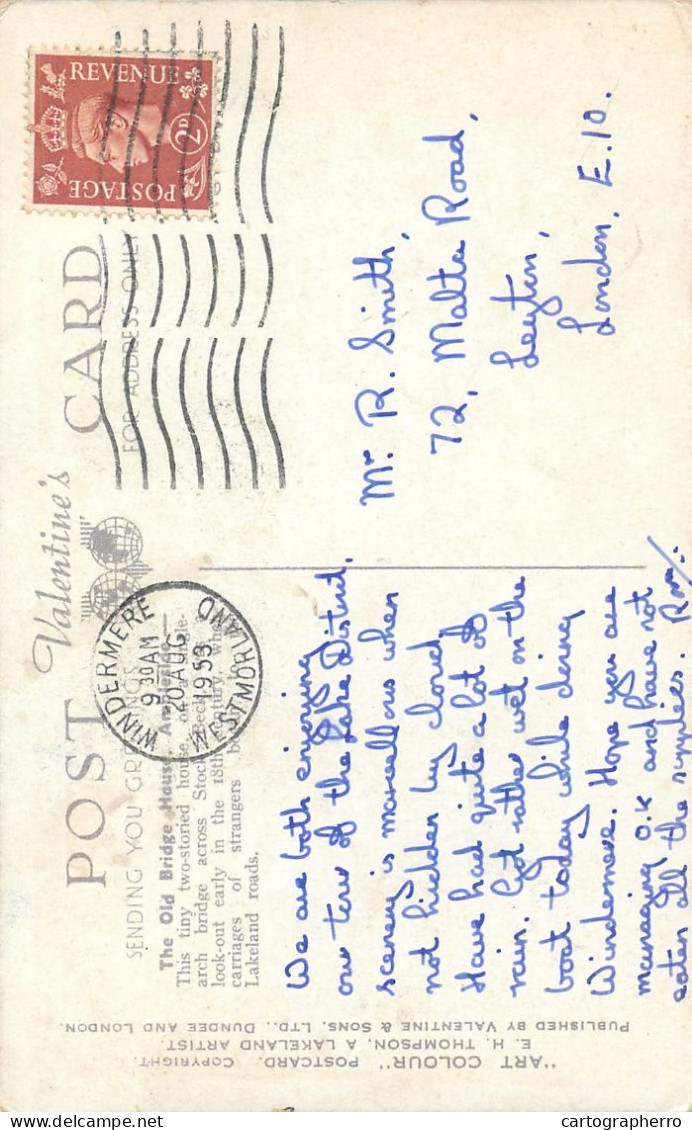 POST CARD
Valentine's
SENDING YOU GREETINGS
FOR ADDRESS ONLY
The Old Bridge House, Ambleside.—
This tiny two-storied house, on a single-
arch bridge across Stock Beck, was a
look-out early in the 18th century, when
carriages of strangers
Lakeland roads.
We are both enjoying
our tour of the Lake District,
scenery is marvellous when
not hidden by cloud.
Have had quite a lot of
rain. Got rather wet on the
boat today while doing
Windermere. Hope you are
managing O.K and have not
eaten all the supplies.
Mr R. Smith,
72, Malta Road,
Leyton,
London, E.10.
REVENUE
2D
POSTAGE
WINDERMERE
9 30AM
20 AUG
1953
WESTMORLAND
"ART COLOUR" POSTCARD. COPYRIGHT.
E. H. THOMPSON, A LAKELAND ARTIST.
PUBLISHED BY VALENTINE & SONS, LTD., DUNDEE AND LONDON.
delcampe.net
cartographerro